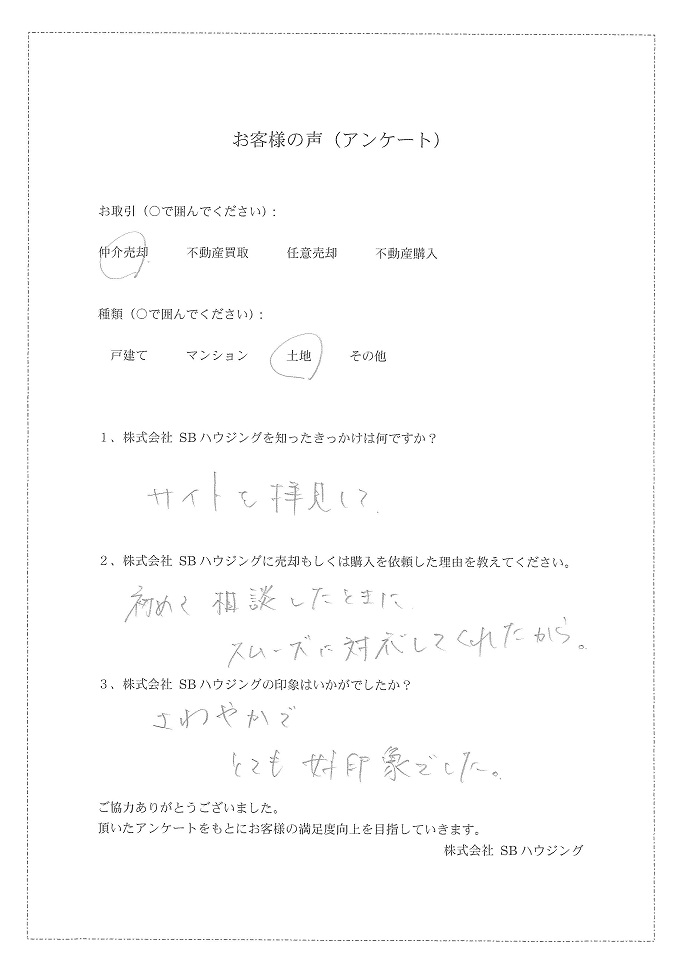 お客様の声（アンケート）
お取引（○で囲んでください）:
仲介売却　不動産買取　任意売却　不動産購入
種類（○で囲んでください）:
戸建て　マンション　土地　その他
１、株式会社 SBハウジングを知ったきっかけは何ですか？
サイトを拝見して.
２、株式会社 SBハウジングに売却もしくは購入を依頼した理由を教えてください。
初めて相談したときに
スムーズに対応してくれたから。
３、株式会社 SBハウジングの印象はいかがでしたか？
さわやかで
とても好印象でした。
ご協力ありがとうございました。
頂いたアンケートをもとにお客様の満足度向上を目指していきます。
株式会社 SBハウジング